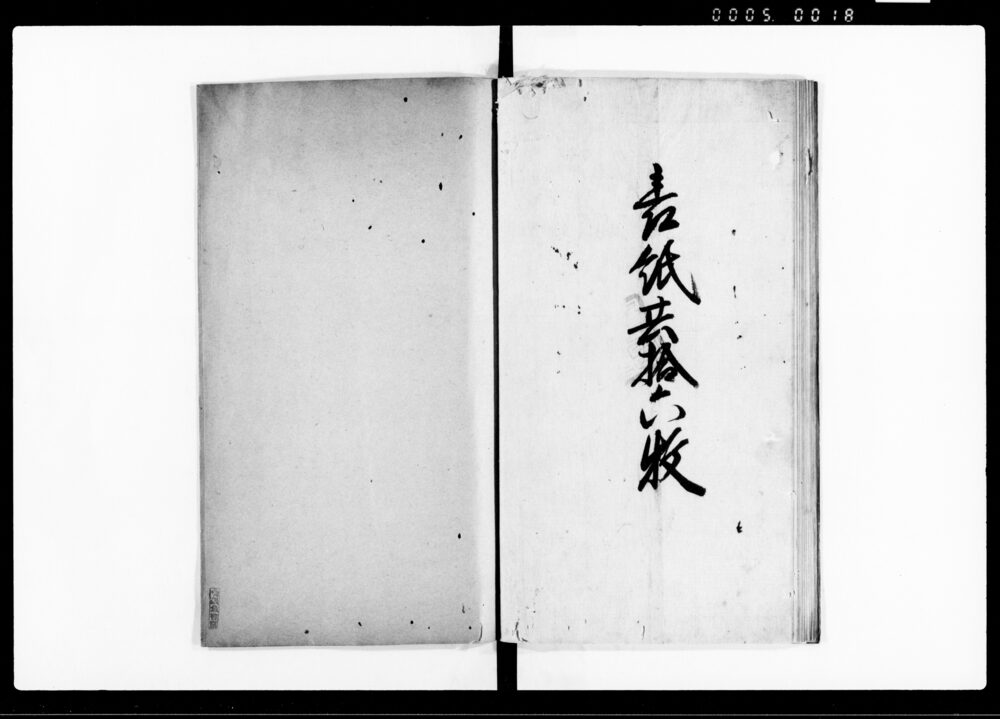 0005. 0018
表紙共拾六枚